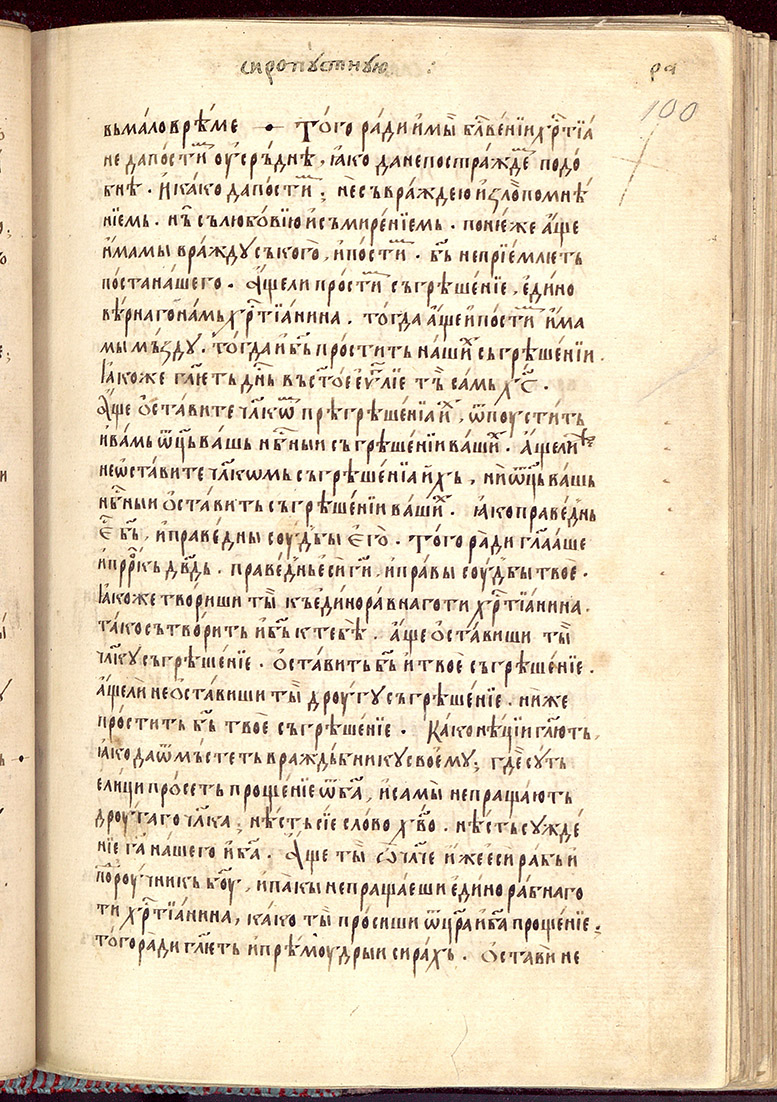 сиропустную :
ра
100
вьмало врѣме • То́го ра́ди и́мы̀ бл҃ве́нїи хр҃тїа́
не да по́стиⷨ оу҆сръ́днѣ, ꙗ҆́ко да не постра́ждеⷨ подо́
бнѣ . И҆ ка́ко да по́стиⷨ ; не съ враждею и҆ ѕлопомнѣ́
нїемь . нъ̀ съ любо́вїю и҆ съмире́нїемь . поне́же а҆́ще
и҆́мамы вра́жду съ ко́го̀, и҆ по́стиⷨ . бъ҃ не прїе́млеть
по́ста на́шего . А҆́ще ли про́стиⷨ съгрѣше́нїе , е҆ди́но
вѣ́рнаго на́мь хр҃тїа́нина . тогда̀ а҆́ще и҆ по́стиⷨ и҆́ма
мы мъ́зду . то́гда и҆ бъ҃ про́стить на́шиⷯ съгрѣше́нїи .
Ꙗ҆́коже гл҃ть гд҇нь въ ст҃ое е҆ѵ҃лїе тъ̀ са́мь х҃с .
А҆́ще ѻ҆ста́вите чл҃кѡⷨ прѣгрѣше́нїа и҆ⷯ , ѿпоу́стить
и҆ ва́мь ѡц҃ь ва́шь нб҃ныи съгрѣше́нїи ва́шиⷯ . а҆́ще лиж
не ѡ҆ста́вите чл҃кѡмь съгрѣше́нїа и҆́хь , ни ѡц҃ь ва́шь
нб҃ныи ѻ҆ста́вить съгрѣше́нїи ва́шиⷯ . ꙗ҆́ко праве́днь
є҆҇ бъ҃ , и҆ пра́ведны соудбы є҆го̀ . То́го ра́ди гл҃а́аше
и҆ прⷪ҇ркь дв҃дь . праве́днье҆сѝ гі҃ . и҆ пра́вы соудбы твоѐ .
Ꙗ҆́коже тво́риши ты̀ къ е҆дино́ра́внаго ти хр҃тїа́нина .
та́ко сътво́рить и҆ бъ҃ къ тебѣ̀ . а҆́ще ѻ҆ста́виши ты̀
чл҃ку съгрѣше́нїе . ѻ҆ста́вить бъ҃ и҆ твоѐ съгрѣше́нїе .
а҆́ще ли не ѻ҆ста́виши ты̀ дроу́гу съгрѣше́нїе . ни́же
про́стить бъ҃ твоѐ съгрѣше́нїе . Ка́ко нѣ́цїи гл҃ють ,
ꙗ҆́ко да ѿмъ́стеть вражды́бнику свое́му ; где су́ть
ели́ци про́сеть проще́нїе ѿ ба҃ , и҆ са́мы не праща́ють
дроу́гаго чл҃ка ; нѣ́сть сїе сло́во хв҃о . нѣ́сть сужде́
нїе га҃ на́шего и҆ ба҃ . А҆́ще ты̀ ѽ чл҃че и҆́же е҆сѝ ра́бь и҆
пⷪдроу́чникь бг҃у , и҆ па́кы не праща́еши е҆ди́нора́бнаго
ти хр҃тїа́нина , ка́ко ты̀ про́сиши ѿ цр҃а и҆ ба҃ проще́нїе ;
то́го ра́ди гл҃ть и҆ прѣмоу́дрыи сира́хь . ѻ҆ста́ви не